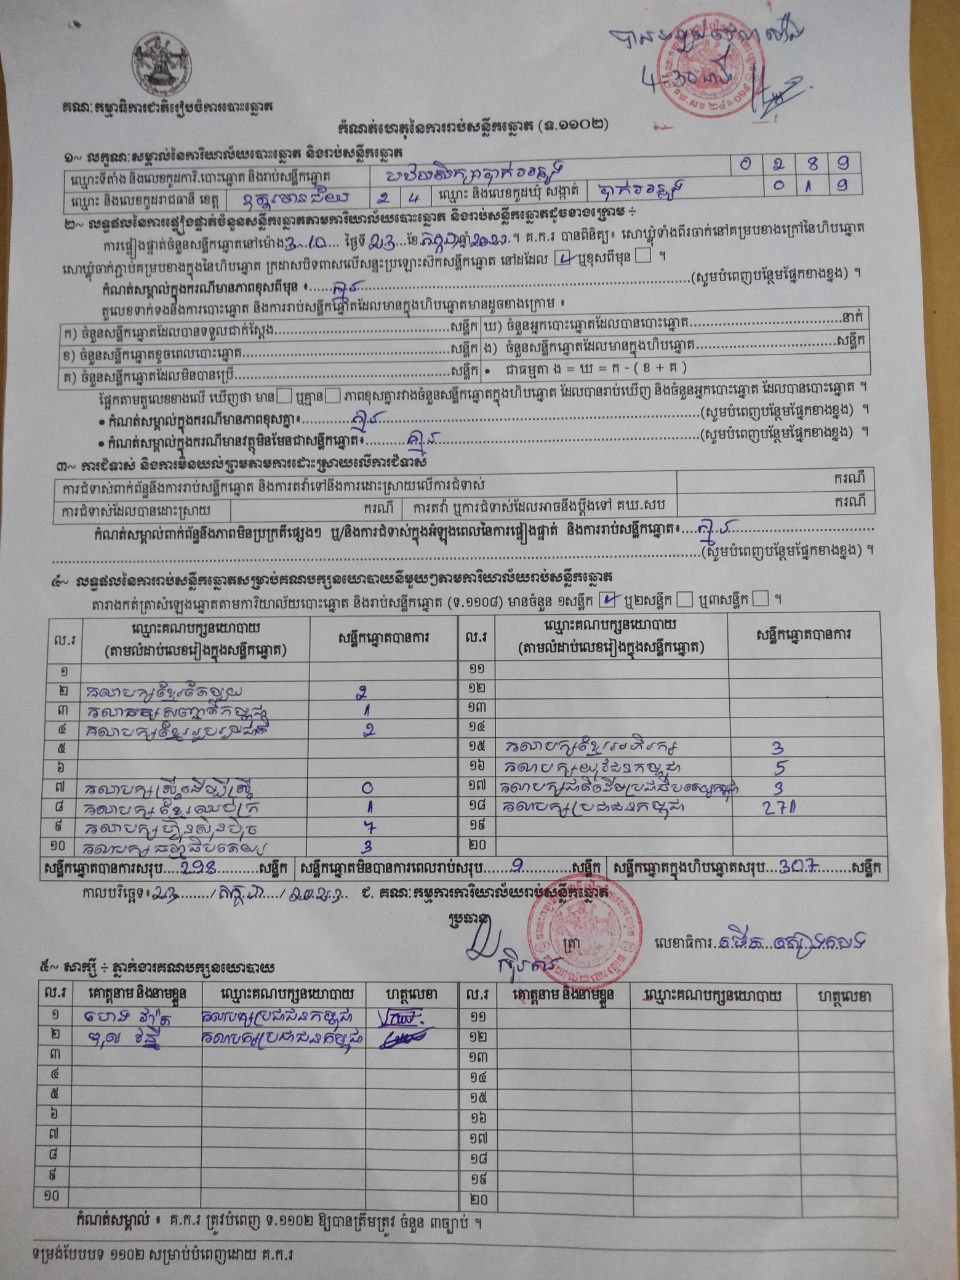 បានទទួល
4-30 នាទី
គណៈកម្មាធិការជាតិរៀបចំការបោះឆ្នោត
កំណត់ហេតុនៃការរាប់សន្លឹកឆ្នោត (ទ.១១០២)
១~ លក្ខណៈសម្គាល់នៃការិយាល័យបោះឆ្នោត និងរាប់សន្លឹកឆ្នោត
ឈ្មោះទីតាំង និងលេខកូដការិ.បោះឆ្នោត និងរាប់សន្លឹកឆ្នោត 0 2 8 9
ឈ្មោះ និងលេខកូដរាជធានី ខេត្ត ឧត្តរមានជ័យ 2 4 ឈ្មោះ និងលេខកូដឃុំ សង្កាត់ 0 1 9
២~ លទ្ធផលនៃការផ្ទៀងផ្ទាត់ចំនួនសន្លឹកឆ្នោតតាមការិយាល័យបោះឆ្នោត និងរាប់សន្លឹកឆ្នោតដូចខាងក្រោម ÷
ការផ្ទៀងផ្ទាត់ចំនួនសន្លឹកឆ្នោតនៅម៉ោង 3:10 ថ្ងៃទី 23 ខែ កក្កដា ឆ្នាំ 2023 ។ គ.ក.រ បានពិនិត្យ៖ សោឃ្លុំទាំងពីរចាក់នៅគម្របខាងក្រៅនៃហិបឆ្នោត
សោឃ្លុំចាក់ភ្ជាប់គម្របខាងក្នុងនៃហិបឆ្នោត ក្រដាសបិទពាសលើសន្ទះប្រឡោះស៊កសន្លឹកឆ្នោត នៅដដែល ឬខុសពីមុន ។
កំណត់សម្គាល់ក្នុងករណីមានភាពខុសពីមុន ៖ គ្មាន (សូមបំពេញបន្ថែមផ្នែកខាងខ្នង) ។
តួលេខទាក់ទងនឹងការបោះឆ្នោត និងការរាប់សន្លឹកឆ្នោតដែលមានក្នុងហិបឆ្នោតមានដូចខាងក្រោម ៖
ក) ចំនួនសន្លឹកឆ្នោតដែលបានទទួលជាក់ស្តែង សន្លឹក ឃ) ចំនួនអ្នកបោះឆ្នោតដែលបានបោះឆ្នោត នាក់
ខ) ចំនួនសន្លឹកឆ្នោតខូចពេលបោះឆ្នោត សន្លឹក ង) ចំនួនសន្លឹកឆ្នោតដែលមានក្នុងហិបឆ្នោត សន្លឹក
គ) ចំនួនសន្លឹកឆ្នោតដែលមិនបានប្រើ សន្លឹក • ជាធម្មតា ង = ឃ = ក - ( ខ + គ )
ផ្អែកតាមតួលេខខាងលើ ឃើញថា មាន ឬគ្មាន ភាពខុសគ្នារវាងចំនួនសន្លឹកឆ្នោតក្នុងហិបឆ្នោត ដែលបានរាប់ឃើញ និងចំនួនអ្នកបោះឆ្នោត ដែលបានបោះឆ្នោត ។
• កំណត់សម្គាល់ក្នុងករណីមានភាពខុសគ្នា៖ គ្មាន (សូមបំពេញបន្ថែមផ្នែកខាងខ្នង) ។
• កំណត់សម្គាល់ក្នុងករណីមានវត្ថុមិនមែនជាសន្លឹកឆ្នោត៖ គ្មាន (សូមបំពេញបន្ថែមផ្នែកខាងខ្នង) ។
៣~ ការជំទាស់ និងការមិនយល់ព្រមតាមការដោះស្រាយលើការជំទាស់
ការជំទាស់ពាក់ព័ន្ធនឹងការរាប់សន្លឹកឆ្នោត និងការតវ៉ាទៅនឹងការដោះស្រាយលើការជំទាស់ ករណី
ការជំទាស់ដែលបានដោះស្រាយ ករណី ការតវ៉ា ឬការជំទាស់ដែលអាចនឹងប្តឹងទៅ គឃ.សប ករណី
កំណត់សម្គាល់ពាក់ព័ន្ធនឹងភាពមិនប្រក្រតីផ្សេងៗ ឬ/និងការជំទាស់ក្នុងអំឡុងពេលនៃការផ្ទៀងផ្ទាត់ និងការរាប់សន្លឹកឆ្នោត៖ គ្មាន
(សូមបំពេញបន្ថែមផ្នែកខាងខ្នង) ។
៤~ លទ្ធផលនៃការរាប់សន្លឹកឆ្នោតសម្រាប់គណបក្សនយោបាយនីមួយៗតាមការិយាល័យរាប់សន្លឹកឆ្នោត
តារាងកត់ត្រាសំឡេងឆ្នោតតាមការិយាល័យបោះឆ្នោត និងរាប់សន្លឹកឆ្នោត (ទ.១១០៨) មានចំនួន ១សន្លឹក ឬ២សន្លឹក ឬ៣សន្លឹក ។
ល.រ ឈ្មោះគណបក្សនយោបាយ (តាមលំដាប់លេខរៀងក្នុងសន្លឹកឆ្នោត) សន្លឹកឆ្នោតបានការ ល.រ ឈ្មោះគណបក្សនយោបាយ (តាមលំដាប់លេខរៀងក្នុងសន្លឹកឆ្នោត) សន្លឹកឆ្នោតបានការ
១ ១១
២ គណបក្សខ្មែរតែមួយ 2 ១២
៣ គណបក្សសញ្ជាតិកម្ពុជា 1 ១៣
៤ គណបក្សខ្មែររួបរួមជាតិ 2 ១៤
៥ ១៥ គណបក្សខ្មែរអភិរក្ស 3
៦ ១៦ គណបក្សយុវជនកម្ពុជា 5
៧ គណបក្សស្ត្រីដើម្បីស្ត្រី 0 ១៧ 3
៨ គណបក្សខ្មែរឈប់ក្រ 1 ១៨ គណបក្សប្រជាជនកម្ពុជា 271
៩ គណបក្សហ៊្វុនស៊ិនប៉ិច 7 ១៩
១០ គណបក្សធម្មាធិបតេយ្យ 3 ២០
សន្លឹកឆ្នោតបានការសរុប 298 សន្លឹក សន្លឹកឆ្នោតមិនបានការពេលរាប់សរុប 9 សន្លឹក សន្លឹកឆ្នោតក្នុងហិបឆ្នោតសរុប 307 សន្លឹក
កាលបរិច្ឆេទ៖ 23 / កក្កដា / 2023 ជ. គណៈកម្មការការិយាល័យរាប់សន្លឹកឆ្នោត
ប្រធាន ត្រា លេខាធិការ
៥~ សាក្សី ÷ ភ្នាក់ងារគណបក្សនយោបាយ
ល.រ គោត្តនាម និងនាមខ្លួន ឈ្មោះគណបក្សនយោបាយ ហត្ថលេខា ល.រ គោត្តនាម និងនាមខ្លួន ឈ្មោះគណបក្សនយោបាយ ហត្ថលេខា
១ គណបក្សប្រជាជនកម្ពុជា ១១
២ គណបក្សប្រជាជនកម្ពុជា ១២
៣ ១៣
៤ ១៤
៥ ១៥
៦ ១៦
៧ ១៧
៨ ១៨
៩ ១៩
១០ ២០
កំណត់សម្គាល់ ៖ គ.ក.រ ត្រូវបំពេញ ទ.១១០២ ឱ្យបានត្រឹមត្រូវ ចំនួន ៣ច្បាប់ ។
ទម្រង់បែបបទ ១១០២ សម្រាប់បំពេញដោយ គ.ក.រ